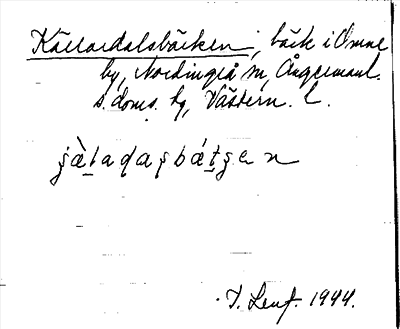 Källardalsbäcken, bäck i Omne
by, Nordingrå sn, Ångermanl.
s. doms. hg, Västern. l.
J. Lenf. 1944.